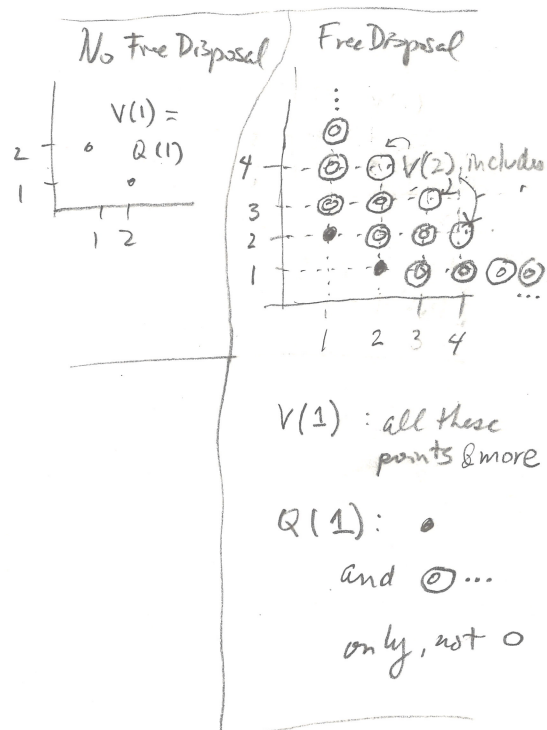 No Free Disposal
V(1) =
Q(1)
2
1
1 2
Free Disposal
4
V(2), includes
3
2
1
1 2 3 4
V(1) : all these
points & more
Q(1):
and
only, not